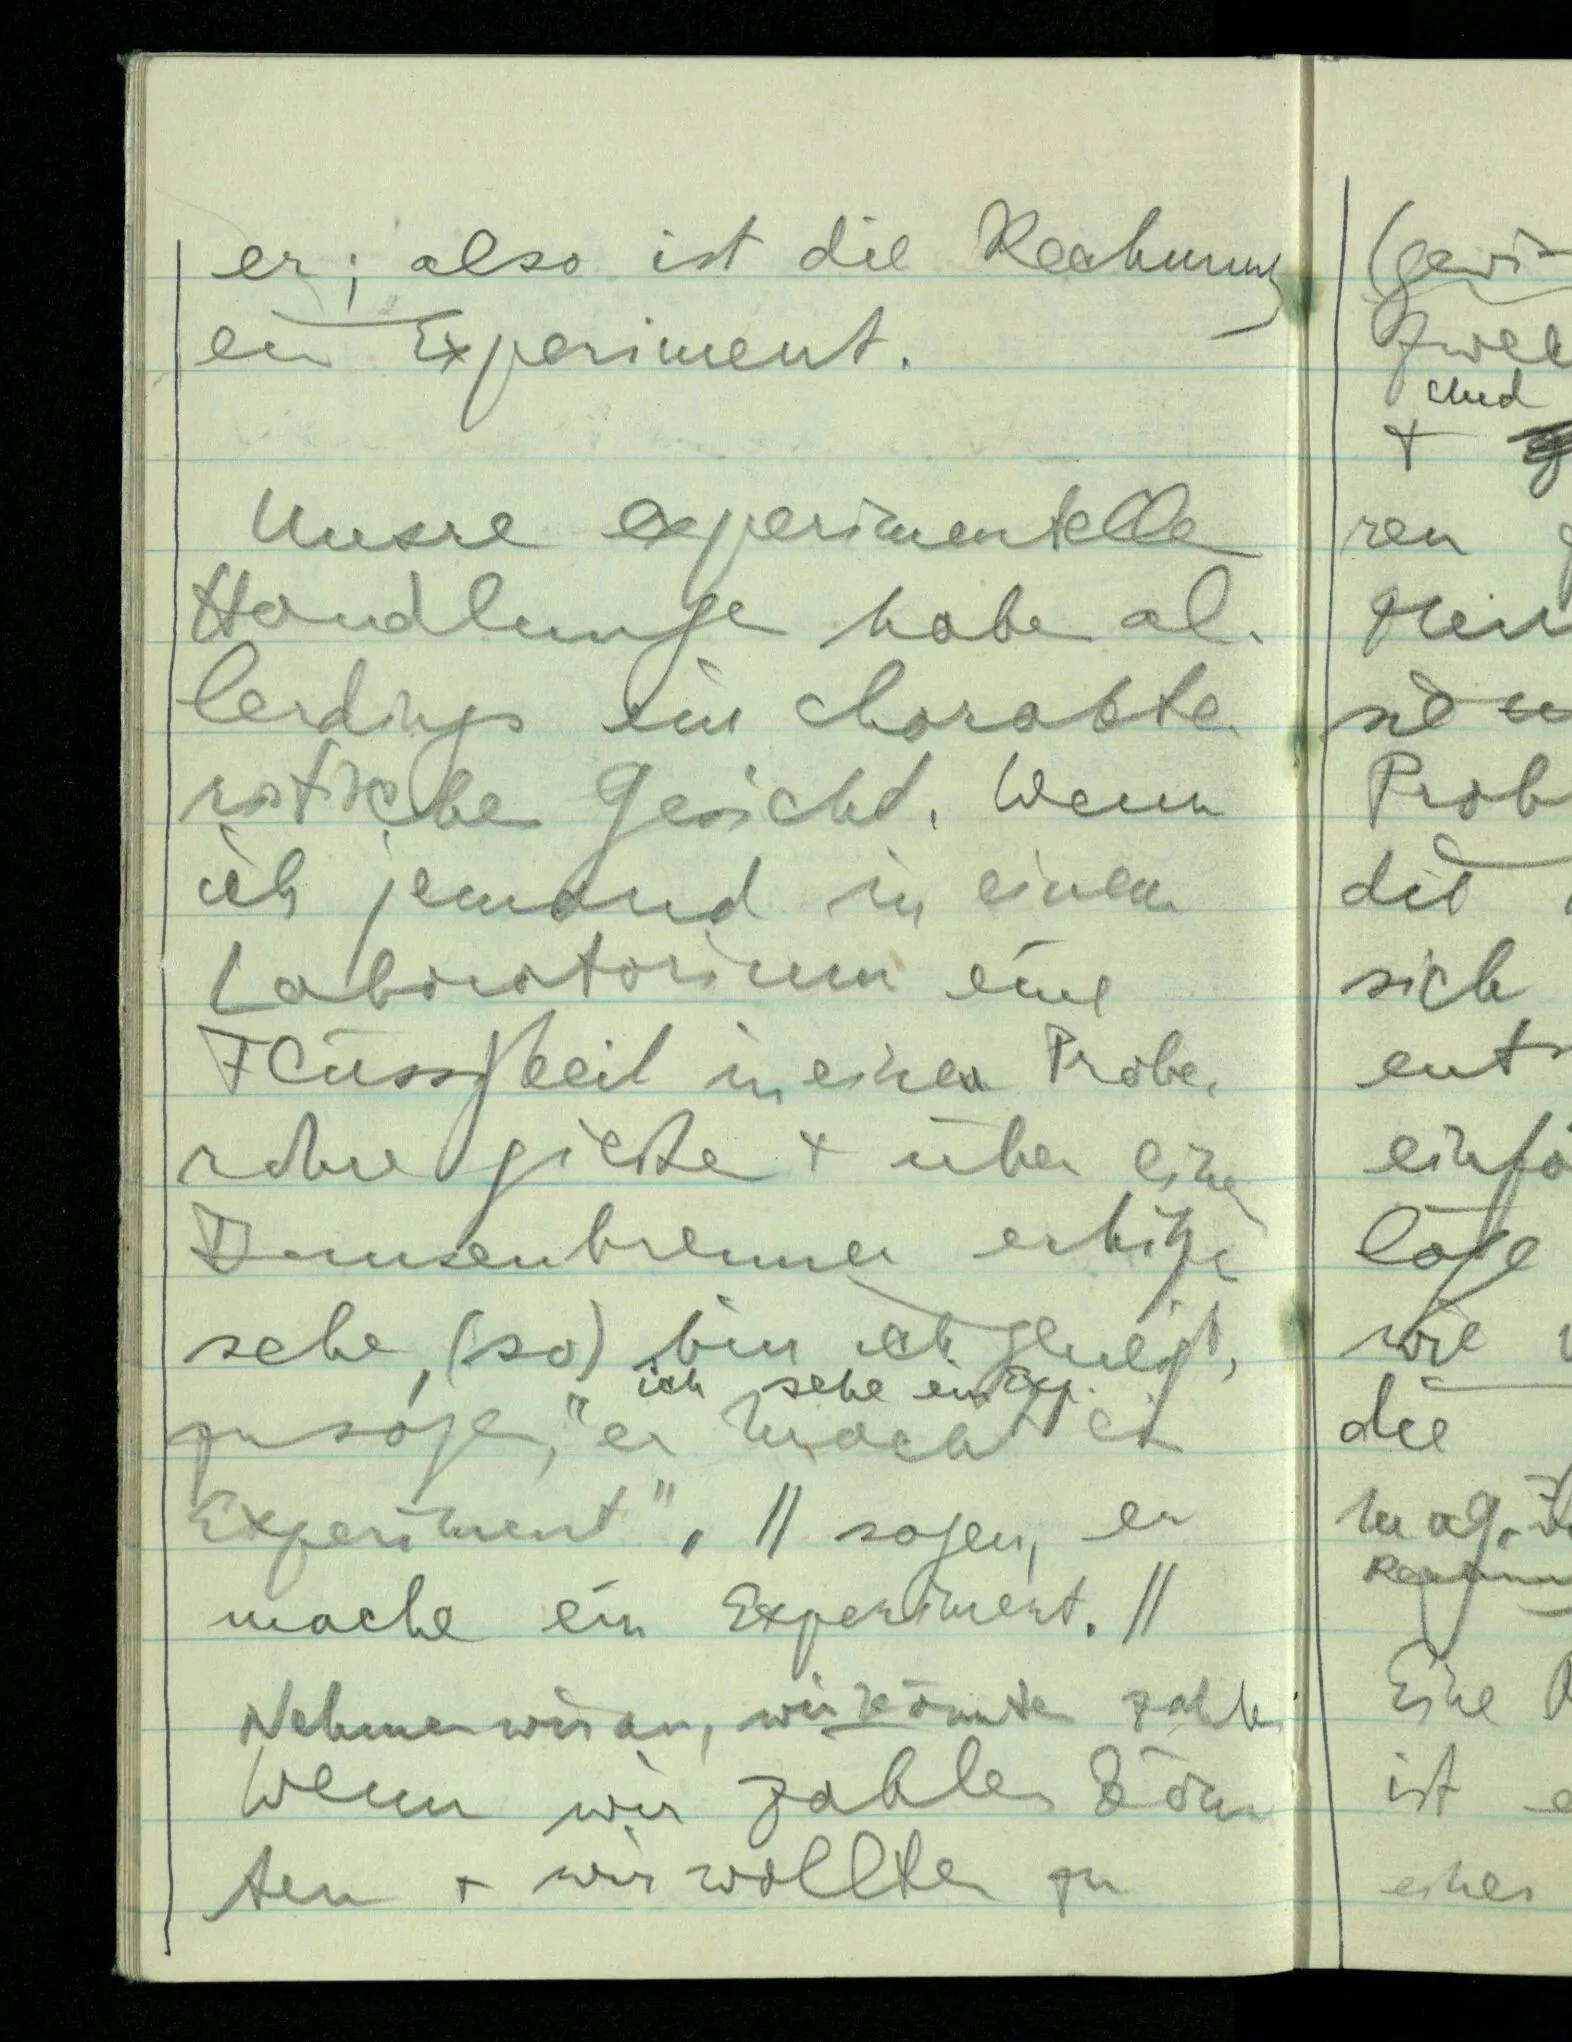 er; also ist die Rechnung
ein Experiment.
Unsre experimentelle
Handlunge habe al-
lerdings ein charakte-
ristische Gesicht. Wenn
ich jemand in einem
Laboratorium eine
Flüssigkeit in einen Probe-
rohre gießen + über einen
Bunsenbrenner erhitzen
sehe, (so) bin ich geneigt,
ich sehe ein Exp.
zu sagen, "er macht ein
Experiment". // sagen, er
mache ein Experiment. //
Nehmen wir an, wir könnten zahlen
Wenn wir zahlen könn
ten + wir wollten zu
(gewi
Zwec
und
+
ren
sie
Prob
die
sich
ent
einfa
wie
die
mag.
Eine
ist
einer